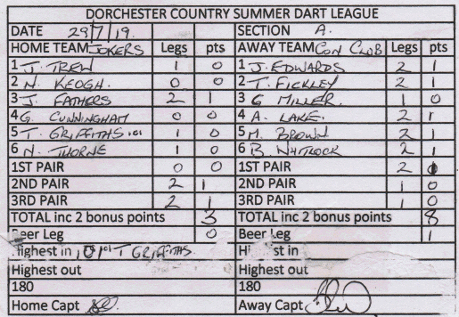 DORCHESTER COUNTRY SUMMER DART LEAGUE
DATE 29/7/19. SECTION A.
HOME TEAM JOKERS Legs pts AWAY TEAM CON CLUB Legs pts
1 J. TREW 1 0 1 J. EDWARDS 2 1
2 N. KEOGH. 0 0 2 T. FICKLEY 2 1
3 J. FATHERS 2 1 3 G MILLER. 1 0
4 G. CUNNINGHAM 0 0 4 A. LAKE. 2 1
5 T. GRIFFITHS 101 1 0 5 M. BROWN 2 1
6 N. THORNE 1 0 6 B. WHITLOCK 2 1
1ST PAIR 0 0 1ST PAIR 2 1
2ND PAIR 2 1 2ND PAIR 1 0
3RD PAIR 2 1 3RD PAIR 1 0
TOTAL inc 2 bonus points 3 TOTAL inc 2 bonus points 8
Beer Leg 0 Beer Leg 1
Highest in 101 T GRIFFITHS. Highest in
Highest out Highest out
180 180
Home Capt Away Capt